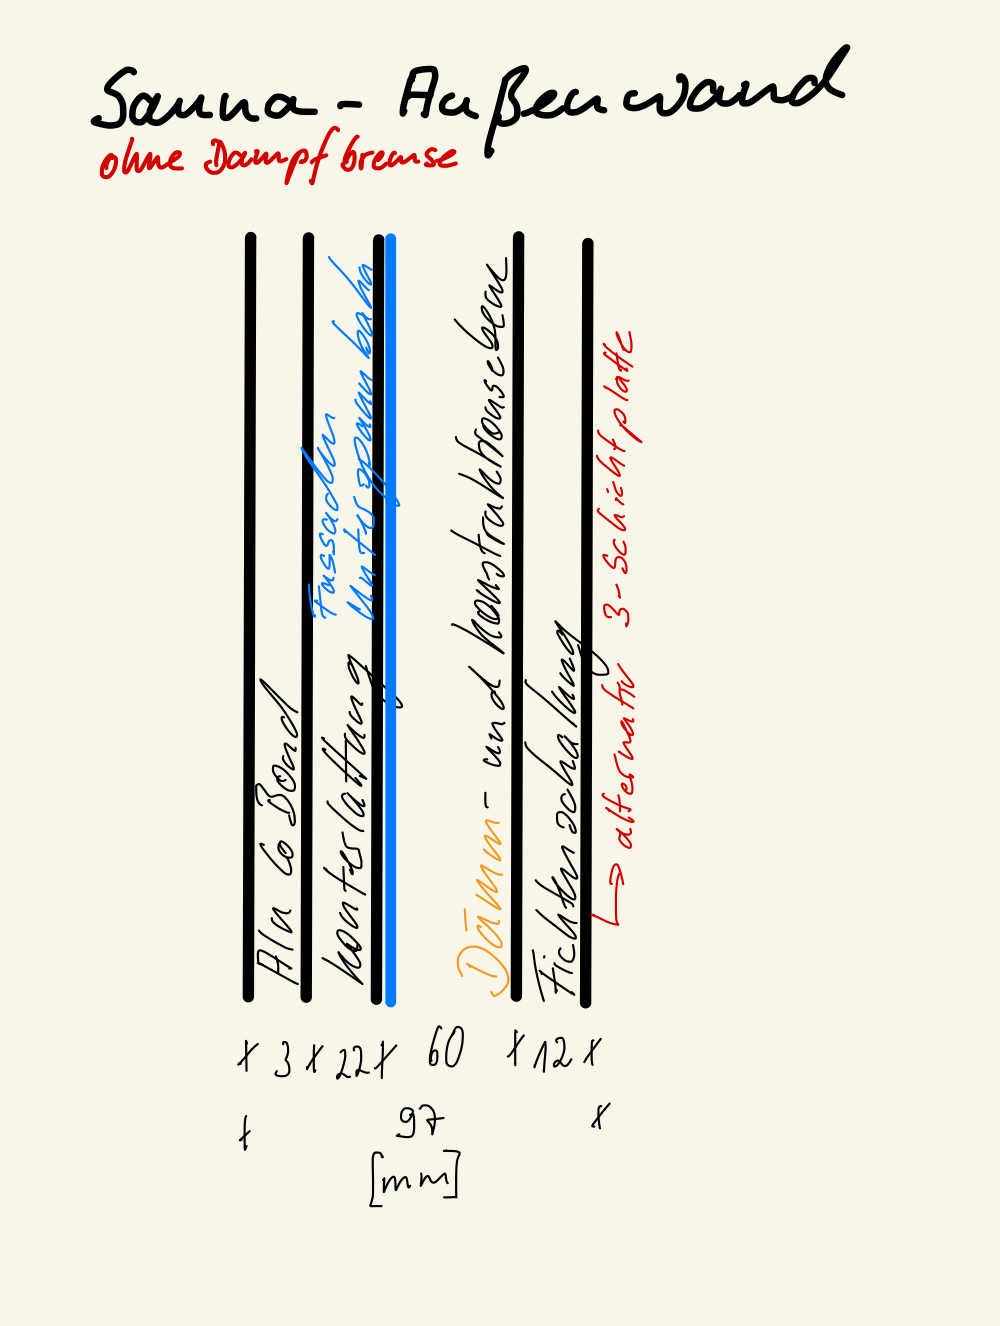 Sauna - Außenwand
ohne Dampfbremse
Alu Co Bond
Konterlattung
Fassaden
Unterspannbahn
Dämm- und Konstruktionsebene
Fichtenschalung
↳ alternativ 3-Schichtplatte
x 3 x 22 x 60 x 12 x
x 97 x
[mm]